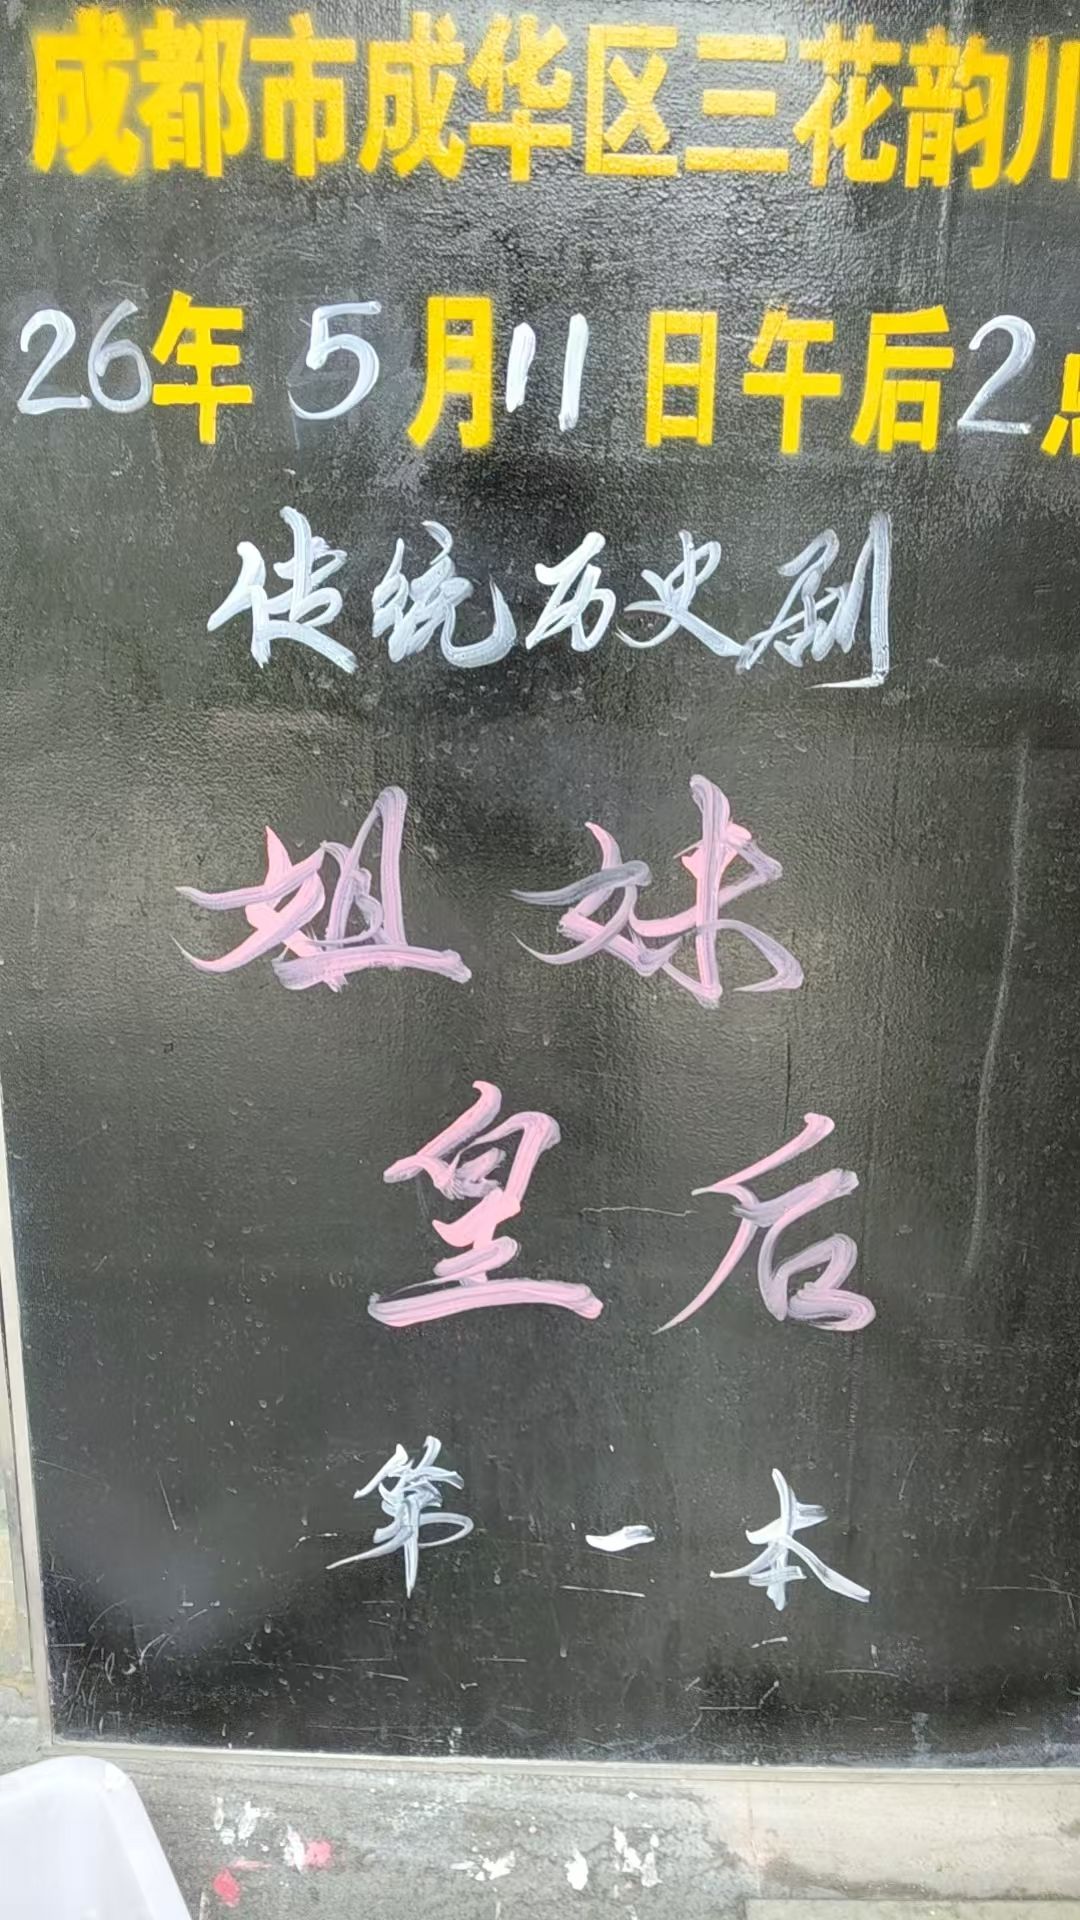 成都市成华区三花韵川
26年5月11日午后2点
传统历史剧
姐妹
皇后
第一本